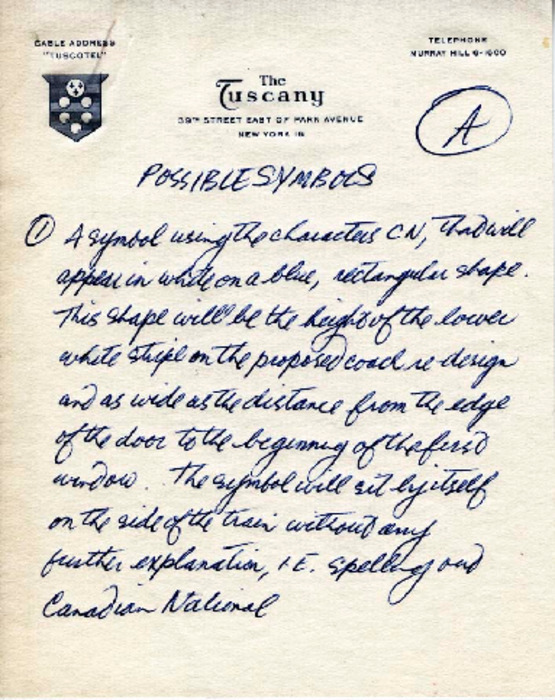 CABLE ADDRESS
"TUSCOTEL"
TELEPHONE
MURRAY HILL 6-1600
The
Tuscany
39TH STREET EAST OF PARK AVENUE
NEW YORK 16
A
POSSIBLE SYMBOLS
① A symbol using the characters CN, that will
appear in white on a blue, rectangular shape.
This shape will be the height of the lower
white stripe on the proposed coach re-design
and as wide as the distance from the edge
of the door to the beginning of the first
window. The symbol will sit by itself
on the side of the train without any
further explanation, I.E. spelling out
Canadian National